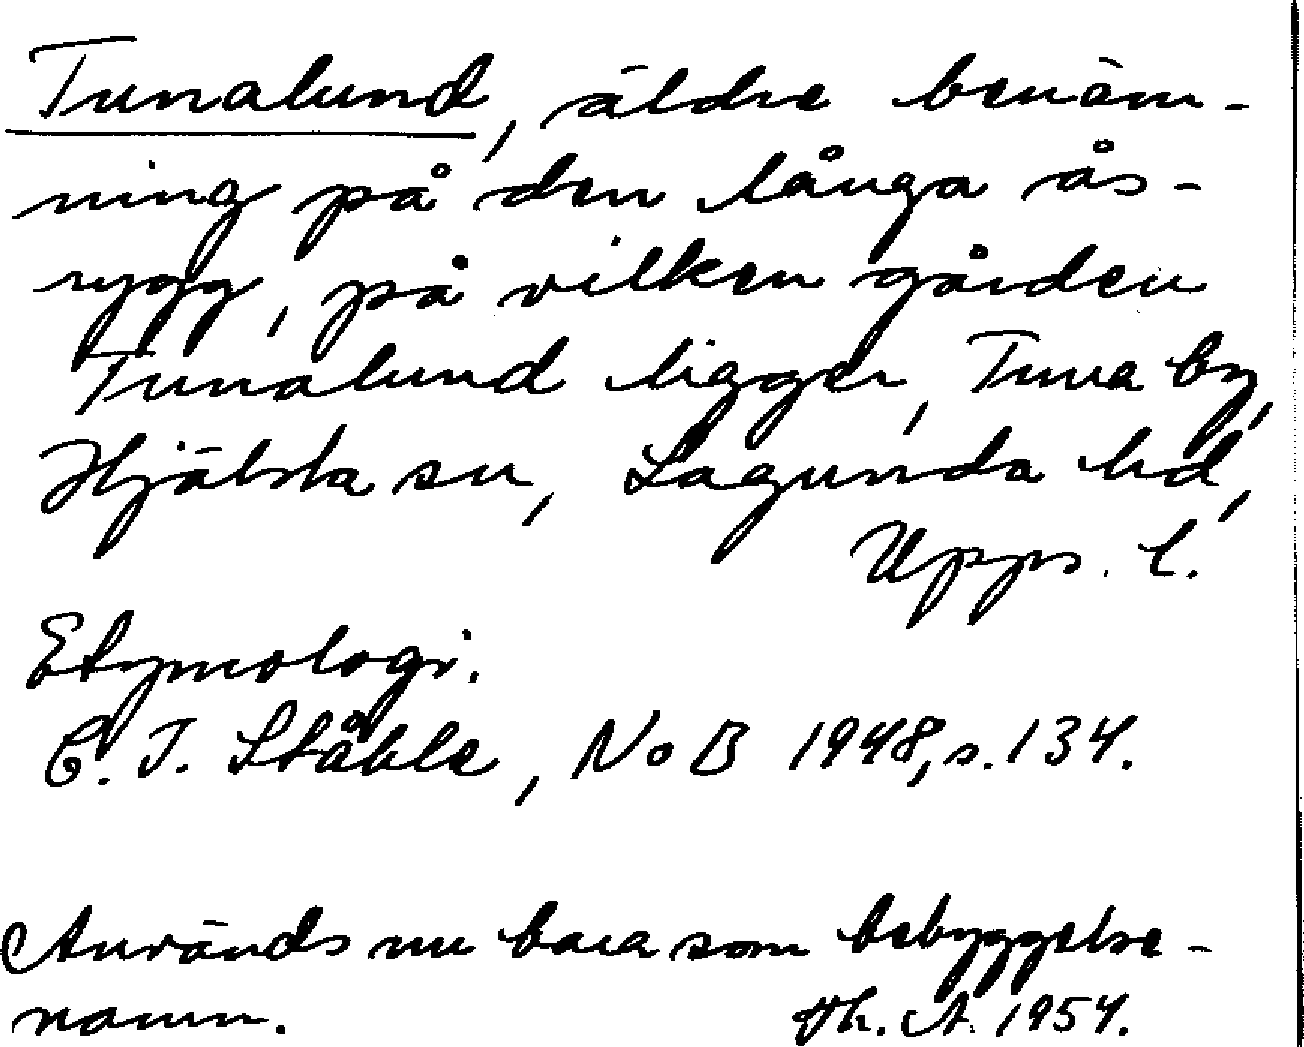 Tunalund, äldre benäm-
ning på den långa ås-
rygg, på vilken gården
Tunalund ligger, Tuna by,
Hjälsta sn, Lagunda hd,
Upps. l.
Etymologi.
C. I. Ståhle, NoB 1948, s. 134.
Används nu bara som bebyggelse-
namn.
A. 1954.